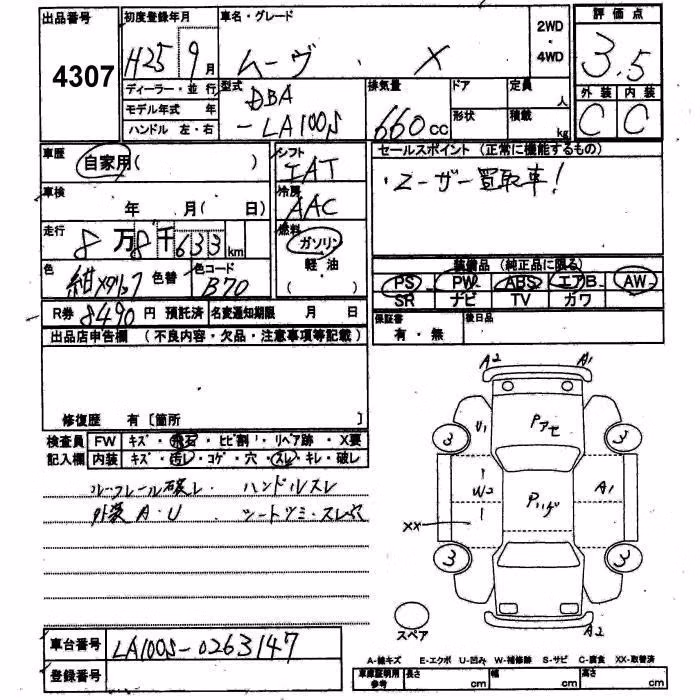 出品番号 4307
初度登録年月 H25 9月
車名・グレード ムーヴ ・ X
2WD・4WD
評価点 3.5
外装 C 内装 C
ディーラー・並行
モデル年式 年
ハンドル 左・右
型式 DBA-LA100S
排気量 660cc
ドア
形状
定員 人
積載 kg
車歴 自家用( )
シフト IAT
冷房 AAC
燃料 ガソリン 軽・油 ( )
車検 年 月( 日)
走行 8万8千633km
色 紺メタリック 色替 色コード B70
R券 8490円 預託済 名変通知期限 月 日
セールスポイント (正常に機能するもの)
・ユーザー買取車!
装備品 (純正品に限る)
PS PW ABS エアB AW
SR ナビ TV カワ
保証書 有・無
後日品
出品店申告欄 (不良内容・欠品・注意事項等記載)
修復歴 有 〔箇所 〕
検査員記入欄
FW キズ・飛石・ヒビ割・リペア跡・X要
内装 キズ・汚レ・コゲ・穴・スレ・キレ・破レ
ルーフレール破レ ・ハンドルスレ
外装A・U ・シート
A2 A1
U1 Pアセ
3 3
W2 A1
XX
3 3
A2
スペア
車台番号 LA100S-0263147
登録番号
A-線キズ E-エクボ U-凹み W-補修跡 S-サビ C-腐食 XX-取替済
車庫証明用参考 長さ cm 幅 cm 高さ cm